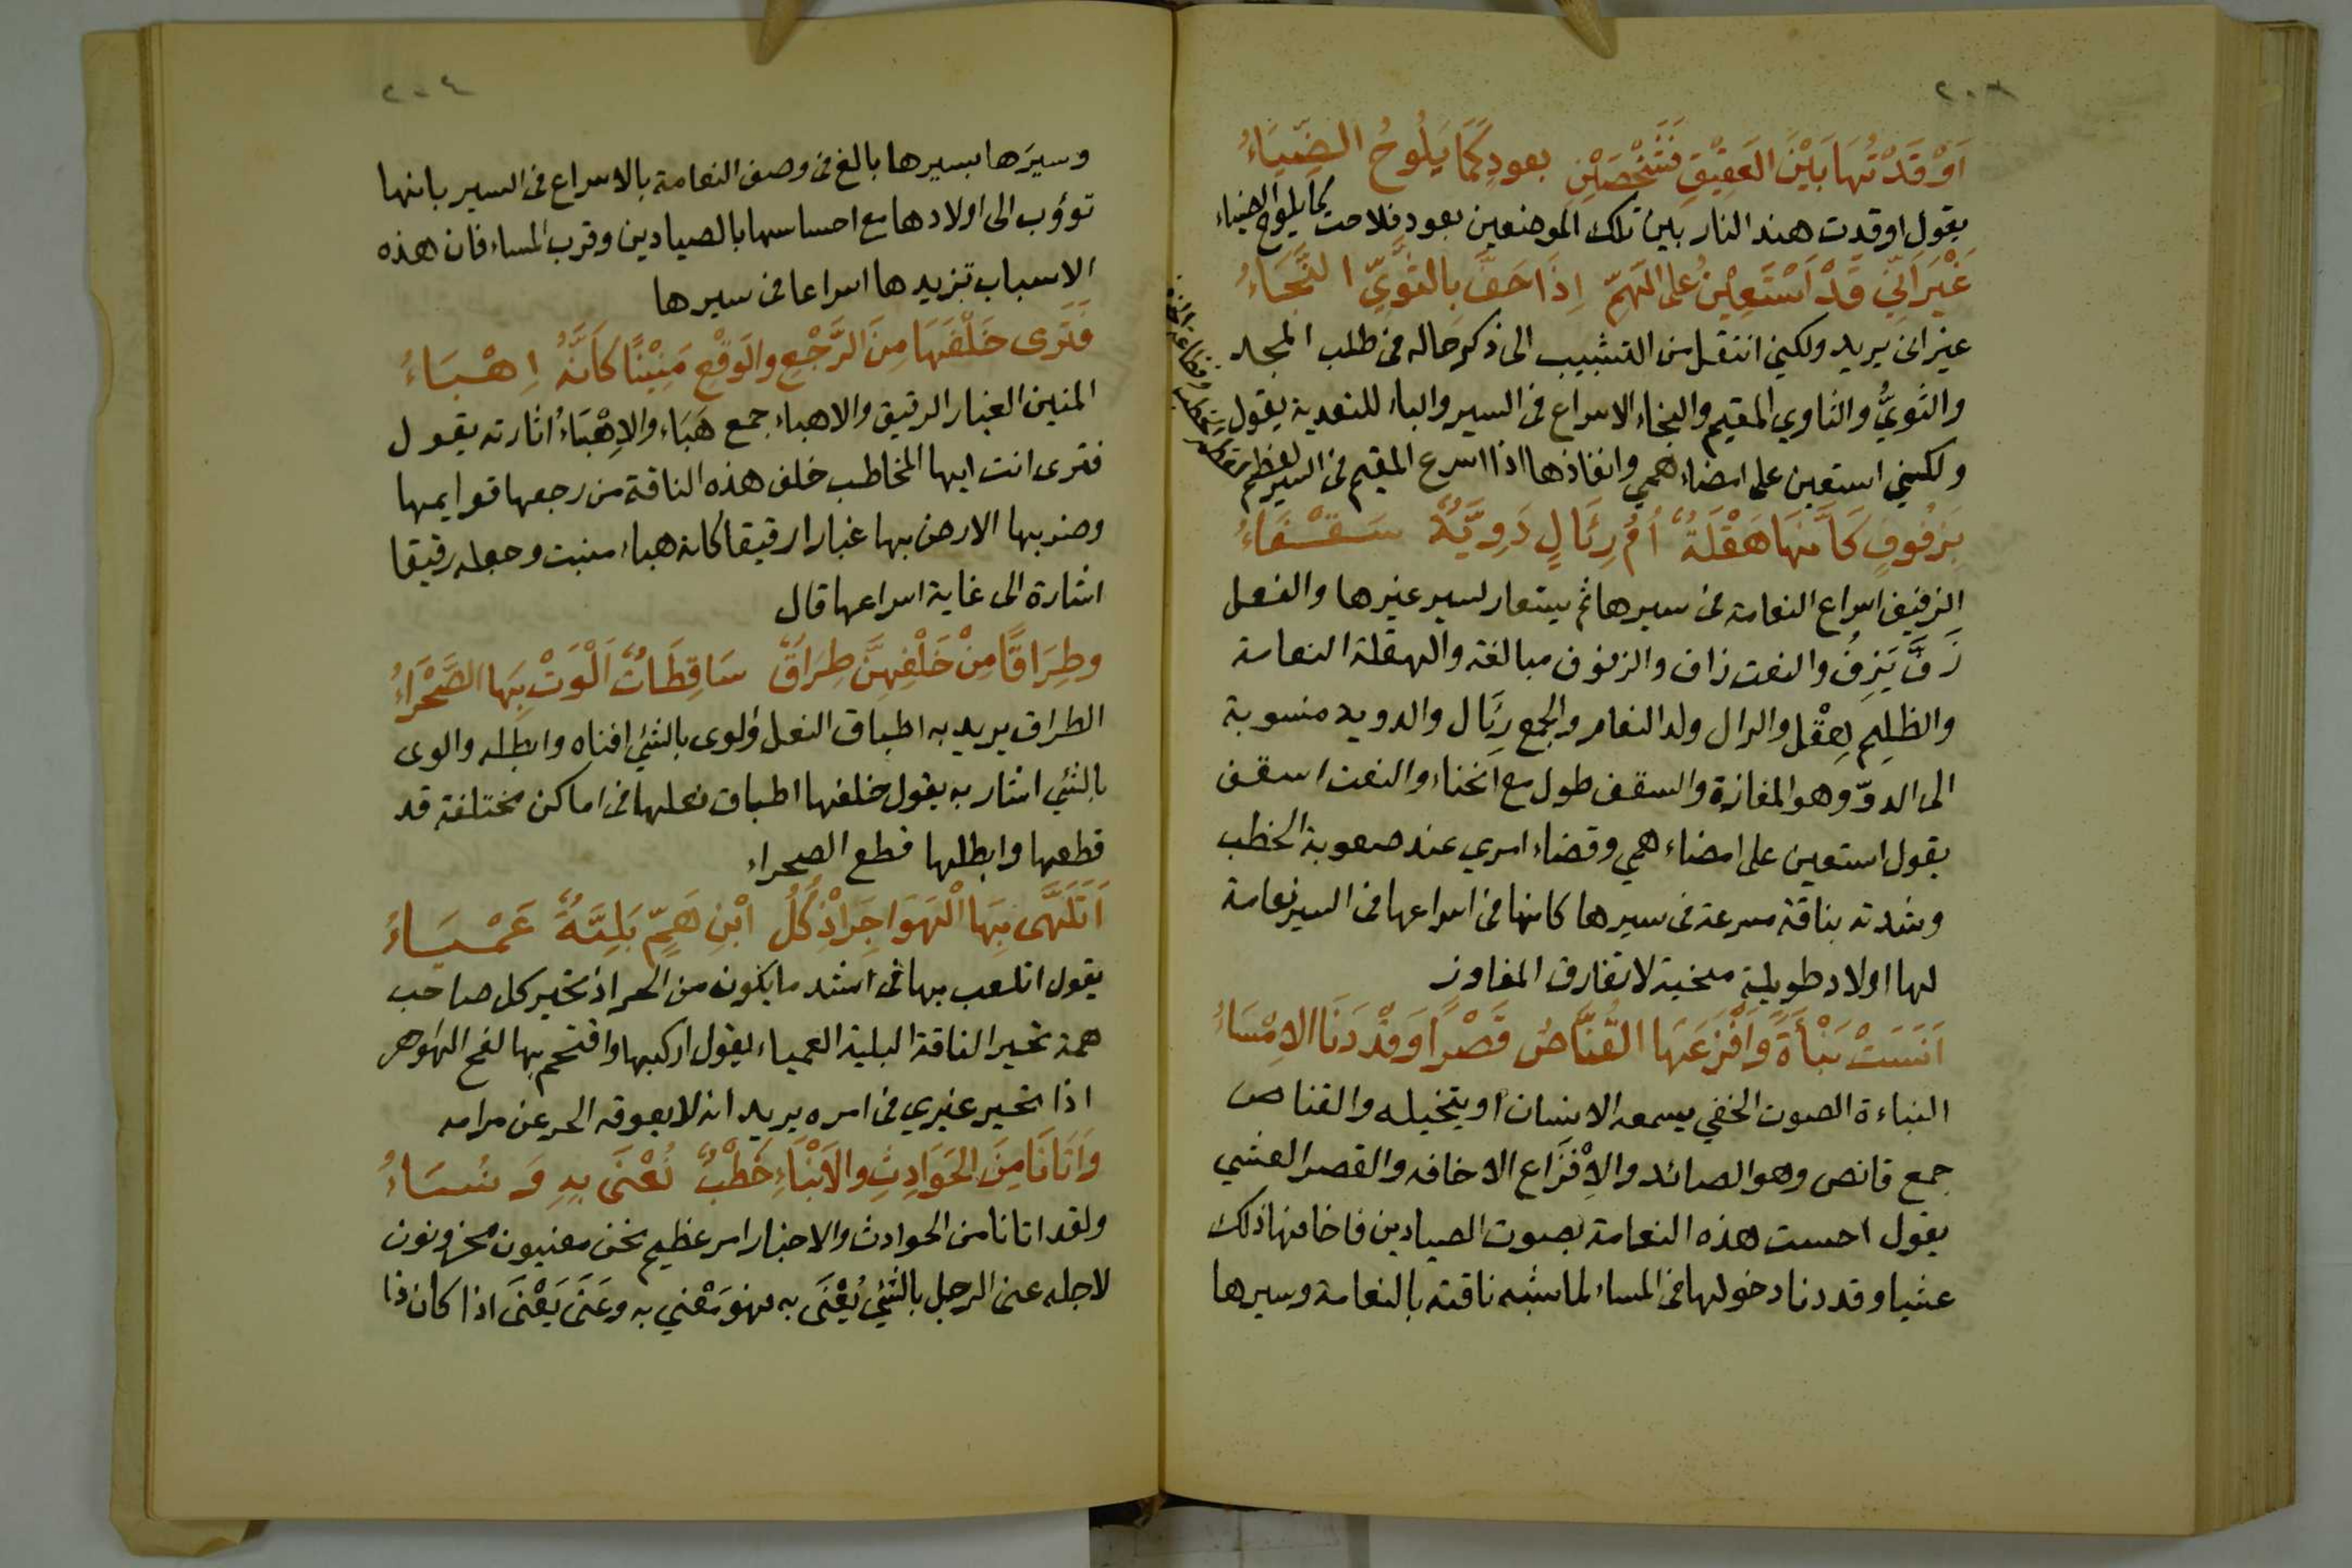 ٢٠٣
اَوْقَدْتُهَا بَيْنَ العَقِيْقِ فَشَخْصَيْنِ بعودٍ كَمَا يَلُوحُ الضِّيَاءُ
يقول اوقدت هند النار بين تلك الموضعين بعود فلاحت كما يلوح الضياء
غَيْرَ اَنّي قَدْ اَسْتَعِيْنُ على الهَمِّ اِذَا خَفَّ بِالثَّوِيِّ النَّجَاءُ
غير انى يريد ولكني انتقل من التشبيب الى ذكر حاله في طلب المجد
والثَوِيُّ والثاوي المقيم والنجاء الاسراع في السير والباء للتعدية يقول
ولكنني استعين على امضاء همي وانفاذها اذا اسرع المقيم في السير لعظم
بِزَفُوفٍ كَاَنَّهَا هَقْلَةٌ اُمُّ رِئَالٍ دَوِيَّةٌ سَقْفَاءُ
الزفيف اسراع النعامة في سيرها ثم يستعار لسير غيرها والفعل
زَفَّ يَزِفُّ والنعت زاف والزفوف مبالغة والهقلة النعامة
والظلِيم هِقْل والرال ولد النعام والجمع رِئَال والدويه منسوبة
الى الدوّ وهو المفازة والسقف طول مع انحناء والنعت اسقف
يقول استعين على امضاء همي وقضاء امري عند صعوبة الخطب
وشدته بناقة مسرعة في سيرها كانها في اسراعها في السير نعامة
لها اولاد طويلة منحنية لا تفارق المفاوز
اَنَسَتْ نَبْأَةً وَاَفْزَعَهَا القُنَّاصُ قَصْرًا وَقَدْ دَنَا الاِمْسَاءُ
النباءة الصوت الخفي يسمعه الانسان او يتخيله والقناص
جمع قانص وهو الصائد والاِفْزَاع الاخافه والقصر العشي
يقول احست هذه النعامة بصوت الصيادين فاخافها ذلك
عشيا وقد دنا دخولها في المساء لما شبه ناقته بالنعامة وسيرها
٢٠٤
وسيرَها بسيرها بالغ في وصف النعامة بالاسراع في السير بانها
تؤوب الى اولادها مع احساسها بالصيادين وقرب المساء فان هذه
الاسباب تزيدها اسراعا في سيرها
فَتَرَى خَلْفَهَا مِنَ الرَّجْعِ والوَقْعِ مَنِيْنًا كَاَنَّهُ اِهْبَاءُ
المنين الغبار الرقيق والاهباء جمع هَبَاء والاِهْبَاءُ اثارته يقول
فترى انت ايها المخاطب خلف هذه الناقة من رجعها قوايمها
وضربها الارض بها غبارا رقيقا كانه هباء منبث وجعله رقيقا
اشارة الى غاية اسراعها قال
وطِرَاقًا مِنْ خَلْفِهِنَّ طِرَاقٌ سَاقِطَاتٌ اَلْوَتْ بِهَا الصَّحْرَاءُ
الطراق يريد به اطباق النعل والوى بالشيء افناه وابطله والوى
بالشيء اشار به يقول خلفها اطباق نعلها في اماكن مختلفة قد
قطعها وابطلها قطع الصحراء
اَتَلَهَّى بِهَا الْهَوَاجِرَ اِذْ كُلُّ ابْنِ هَمٍّ بَلِيَّةٌ عَمْيَاءُ
يقول اتلعب بها في اشد ما يكون من الحر اذ تحير كل صاحب
همة تحير الناقة البلية العمياء يقول اركبها واقتحم بها لفح الهواجر
اذا تحير غيري في امره يريد انه لا يعوقه الحر عن مرامه
وَاَتَانَا مِنَ الحَوَادِثِ والاَنْبَاءِ خَطْبٌ نُعْنَى بِهِ وَنُسَاءُ
ولقد اتانا من الحوادث والاخبار امر عظيم نحن معنيون محزونون
لاجله عنى الرجل بالشيء يُعْنَى به فهو مَعْني به وعَنَى يَعْنَى اذا كان ذا